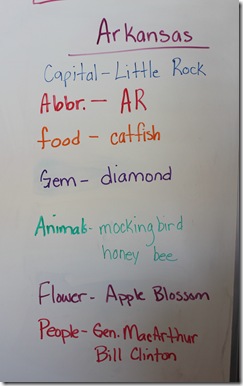 Arkansas
Capital - Little Rock
Abbr. - AR
food - catfish
Gem - diamond
Animals - mockingbird
honey bee
Flower - Apple Blossom
People - Gen. MacArthur
Bill Clinton